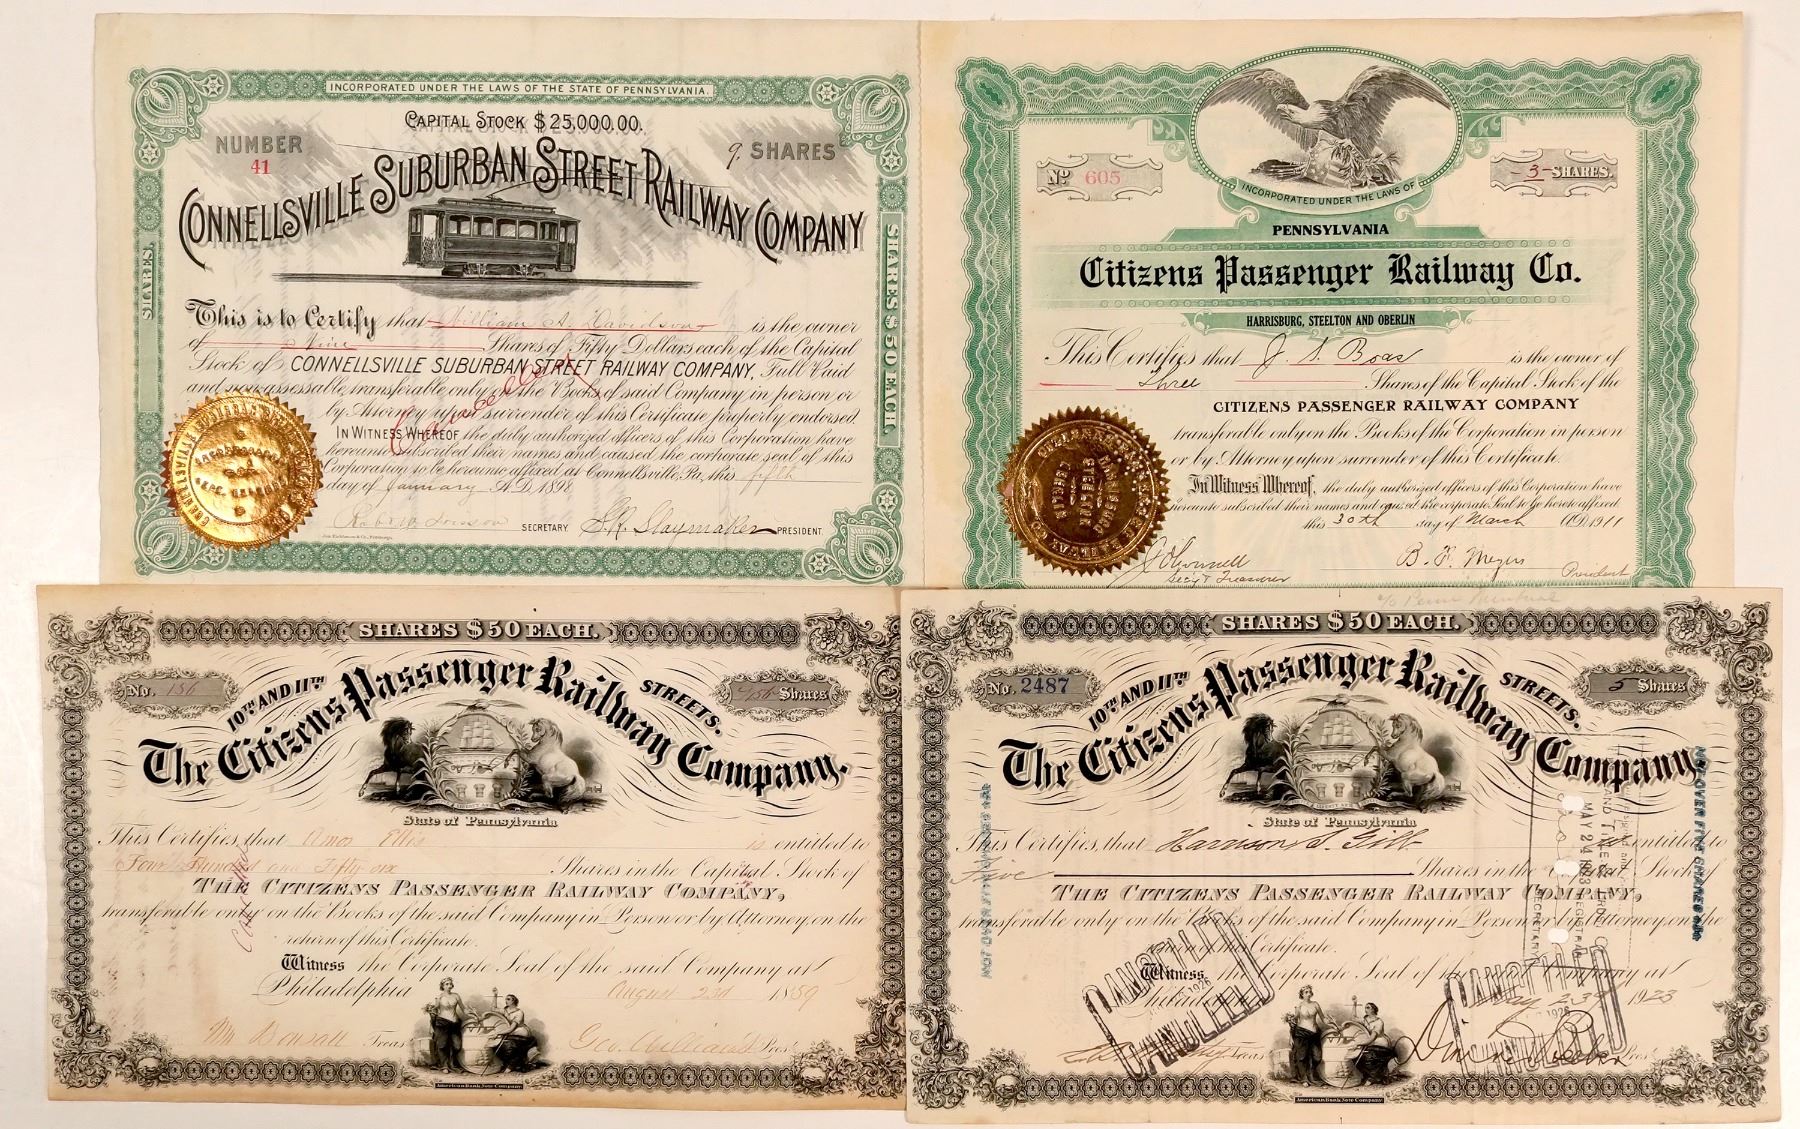 INCORPORATED UNDER THE LAWS OF THE STATE OF PENNSYLVANIA.
CAPITAL STOCK $25,000.00.
NUMBER
41
9. SHARES
CONNELLSVILLE SUBURBAN STREET RAILWAY COMPANY
SHARES.
SHARES $50 EACH.
This is to Certify that William A. Davidson is the owner
of Nine Shares of Fifty Dollars each of the Capital
Stock of CONNELLSVILLE SUBURBAN STREET RAILWAY COMPANY, Full Paid
and non-assessable, transferable only on the Books of said Company in person or
by Attorney upon surrender of this Certificate properly endorsed.
Cancelled
IN WITNESS WHEREOF the duly authorized officers of this Corporation have
hereunto subscribed their names and caused the corporate seal of this
Corporation to be hereunto affixed at Connellsville, Pa, this fifth
day of January A.D. 1898
SECRETARY. S.R. Slaymaker PRESIDENT
INCORPORATED UNDER THE LAWS OF
PENNSYLVANIA
No 605
-3- SHARES.
Citizens Passenger Railway Co.
HARRISBURG, STEELTON AND OBERLIN
This Certifies that J. S. Boas is the owner of
Three Shares of the Capital Stock of the
CITIZENS PASSENGER RAILWAY COMPANY
transferable only on the Books of the Corporation in person
or by Attorney upon surrender of this Certificate.
In Witness Whereof, the duly authorized officers of this Corporation have
hereunto subscribed their names and caused its corporate Seal to be hereto affixed
this 30th day of March A.D. 1911
B. F. Meyers
Secy & Treasurer President
SHARES $50 EACH.
No. 156
456 Shares
10TH AND 11TH STREETS.
The Citizens Passenger Railway Company.
State of Pennsylvania
This Certifies, that Amos Ellis is entitled to
Four Hundred and Fifty six Shares in the Capital Stock of
THE CITIZENS PASSENGER RAILWAY COMPANY,
transferable only on the Books of the said Company in Person or by Attorney, on the
return of this Certificate.
Cancelled
Witness the Corporate Seal of the said Company at
Philadelphia August 23d 1859
Wm Bonsall Treas
Geo. Williams Pres't
American Bank Note Company
SHARES $50 EACH.
No. 2487
5 Shares
10TH AND 11TH STREETS.
The Citizens Passenger Railway Company
State of Pennsylvania
NOT OVER FIVE SHARES $50
NOT OVER
MAY 24 1923
REGISTRAR
SECRETARY
This Certifies, that Harrison S. Gill is entitled to
Five Shares in the Capital Stock of
THE CITIZENS PASSENGER RAILWAY COMPANY,
transferable only on the Books of the said Company in Person or by Attorney, on the
return of this Certificate.
Witness the Corporate Seal of the said Company at
Philadelphia May 23rd 1923
CANCELLED
1926
CANCELLED
1926
Treas
Pres't
American Bank Note Company